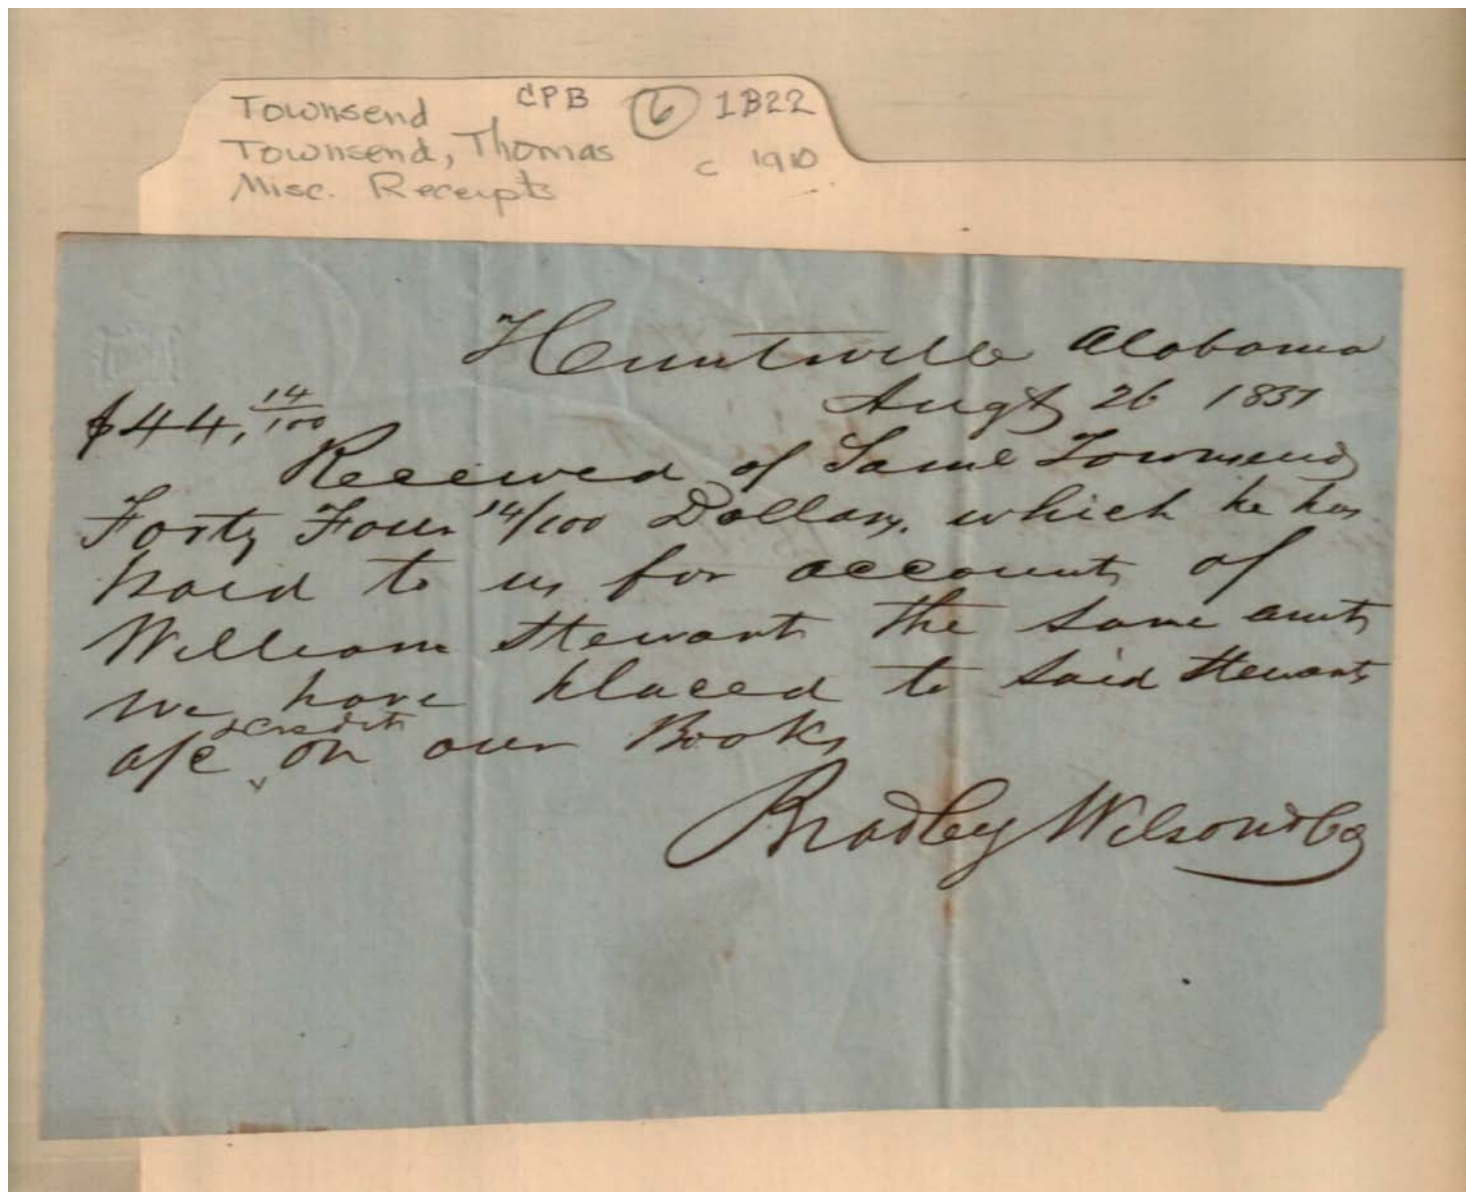 Townsend CPB 6 1B22
Townsend, Thomas c 1910
Misc. Receipts
Huntsville Alabama
Augt 26 1851
$44, 14/100
Received of Saml Townsend
Forty Four 14/100 Dollars, which he has
paid to us for accounts of
William Stewart the same amt
we have placed to said Stewarts
a/c credit on our Books
Bradley Wilson & Co